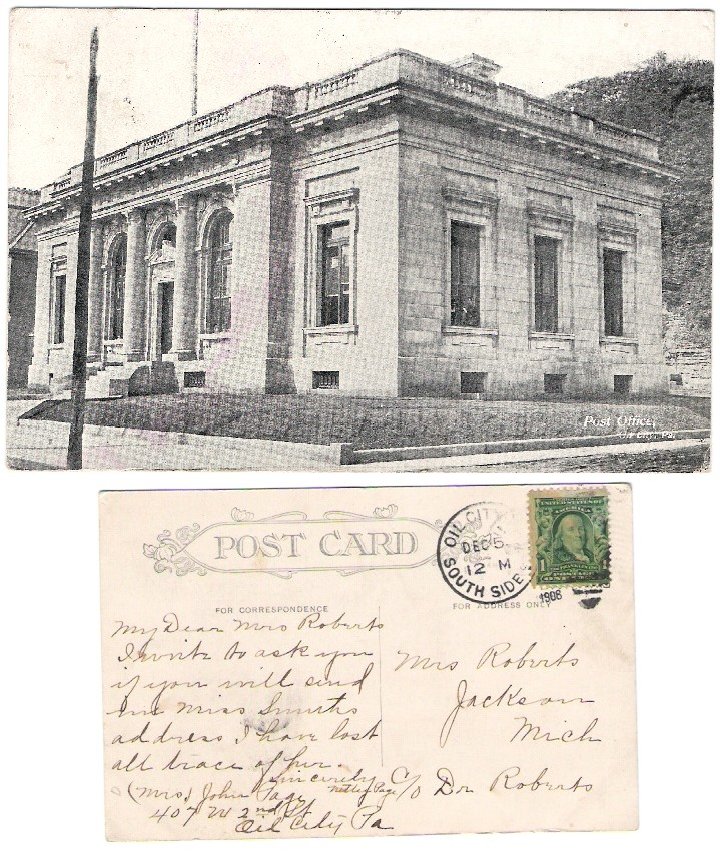 Post Office,
Oil City, Pa.
POST CARD
OIL CITY
DEC 5
12 M
SOUTH SIDE
1908
UNITED STATES OF
AMERICA
1 1
FRANKLIN
POSTAGE
FOR CORRESPONDENCE
FOR ADDRESS ONLY
My Dear Mrs Roberts
I write to ask you
if you will send
me Miss Smiths
address I have lost
all trace of her.
Sincerely
(Mrs) John Page
Nettie Page
407 W 2nd St
Oil City Pa
Mrs Roberts
Jackson
Mich
C/o Dr Roberts